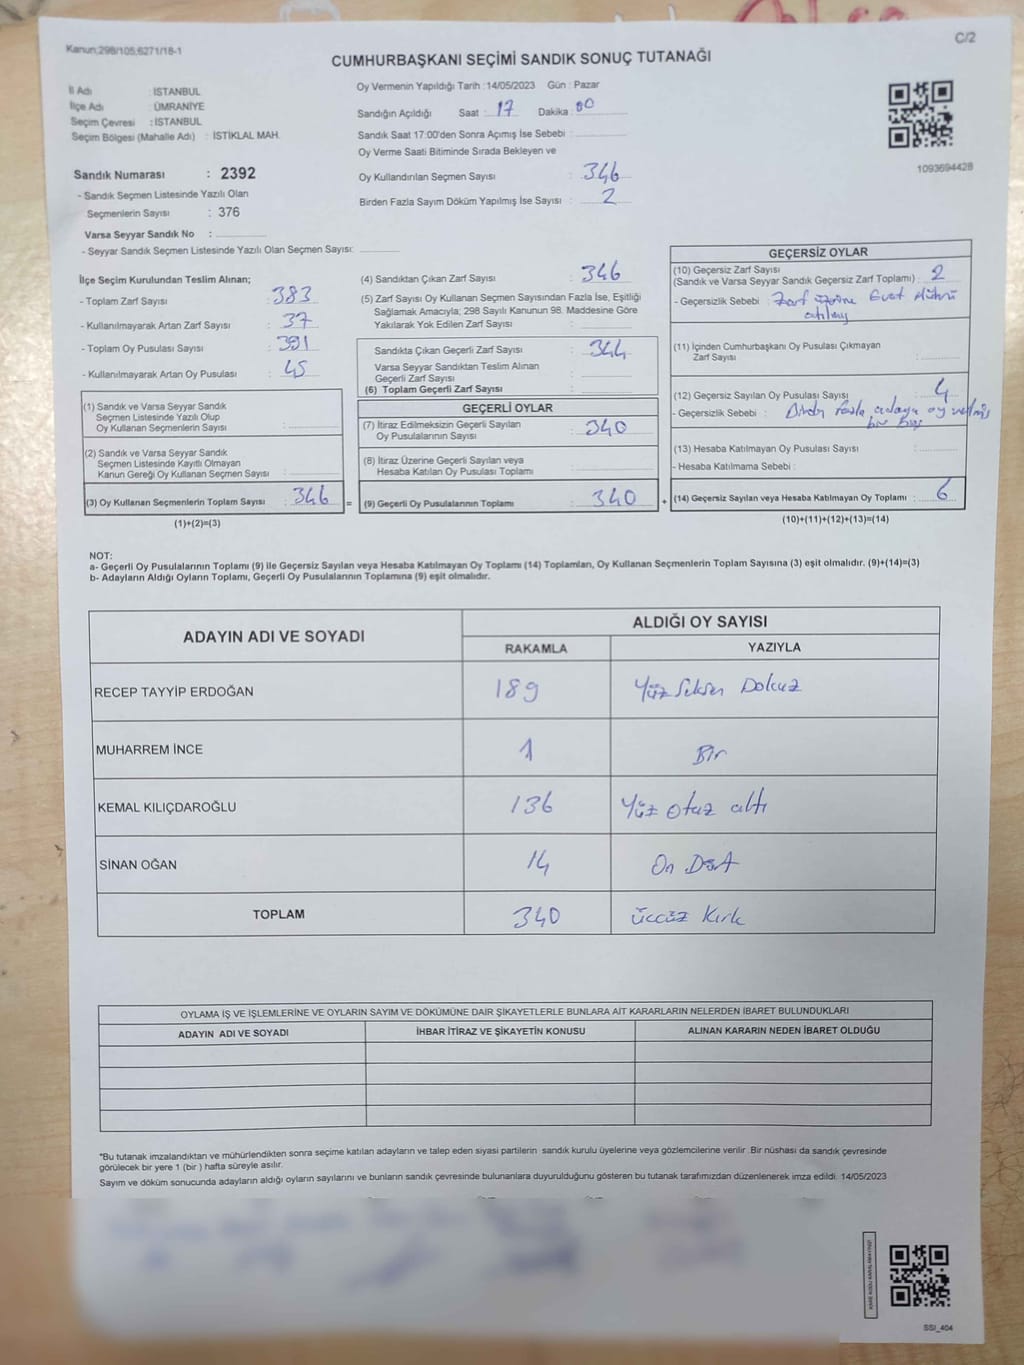 Kanun;298/105,6271/18-1
C/2
CUMHURBAŞKANI SEÇİMİ SANDIK SONUÇ TUTANAĞI
İl Adı : İSTANBUL
İlçe Adı : ÜMRANİYE
Seçim Çevresi : İSTANBUL
Seçim Bölgesi (Mahalle Adı) : İSTİKLAL MAH.
Sandık Numarası : 2392
- Sandık Seçmen Listesinde Yazılı Olan
Seçmenlerin Sayısı : 376
Varsa Seyyar Sandık No :
- Seyyar Sandık Seçmen Listesinde Yazılı Olan Seçmen Sayısı:
Oy Vermenin Yapıldığı Tarih :14/05/2023 Gün : Pazar
Sandığın Açıldığı Saat : 17 Dakika : 00
Sandık Saat 17:00'den Sonra Açımış İse Sebebi :
Oy Verme Saati Bitiminde Sırada Bekleyen ve
Oy Kullandırılan Seçmen Sayısı : 346
Birden Fazla Sayım Döküm Yapılmış İse Sayısı : 2
1093694428
İlçe Seçim Kurulundan Teslim Alınan;
- Toplam Zarf Sayısı : 383
- Kullanılmayarak Artan Zarf Sayısı : 37
- Toplam Oy Pusulası Sayısı : 391
- Kullanılmayarak Artan Oy Pusulası : 45
(1) Sandık ve Varsa Seyyar Sandık
Seçmen Listesinde Yazılı Olup
Oy Kullanan Seçmenlerin Sayısı :
(2) Sandık ve Varsa Seyyar Sandık
Seçmen Listesinde Kayıtlı Olmayan
Kanun Gereği Oy Kullanan Seçmen Sayısı :
(3) Oy Kullanan Seçmenlerin Toplam Sayısı : 346 =
(1)+(2)=(3)
(4) Sandıktan Çıkan Zarf Sayısı : 346
(5) Zarf Sayısı Oy Kullanan Seçmen Sayısından Fazla İse, Eşitliği
Sağlamak Amacıyla; 298 Sayılı Kanunun 98. Maddesine Göre
Yakılarak Yok Edilen Zarf Sayısı :
Sandıkta Çıkan Geçerli Zarf Sayısı : 344
Varsa Seyyar Sandıktan Teslim Alınan
Geçerli Zarf Sayısı :
(6) Toplam Geçerli Zarf Sayısı :
GEÇERLİ OYLAR
(7) İtiraz Edilmeksizin Geçerli Sayılan
Oy Pusulalarının Sayısı : 340
(8) İtiraz Üzerine Geçerli Sayılan veya
Hesaba Katılan Oy Pusulası Toplamı :
(9) Geçerli Oy Pusulalarının Toplamı : 340 +
GEÇERSİZ OYLAR
(10) Geçersiz Zarf Sayısı
(Sandık ve Varsa Seyyar Sandık Geçersiz Zarf Toplamı) : 2
- Geçersizlik Sebebi : Zarf üzerine Evet Mührü
(11) İçinden Cumhurbaşkanı Oy Pusulası Çıkmayan
Zarf Sayısı :
(12) Geçersiz Sayılan Oy Pusulası Sayısı : 4
- Geçersizlik Sebebi : Birden fazla adaya oy verilmiş
(13) Hesaba Katılmayan Oy Pusulası Sayısı :
- Hesaba Katılmama Sebebi :
(14) Geçersiz Sayılan veya Hesaba Katılmayan Oy Toplamı : 6
(10)+(11)+(12)+(13)=(14)
NOT:
a- Geçerli Oy Pusulalarının Toplamı (9) ile Geçersiz Sayılan veya Hesaba Katılmayan Oy Toplamı (14) Toplamları, Oy Kullanan Seçmenlerin Toplam Sayısına (3) eşit olmalıdır. (9)+(14)=(3)
b- Adayların Aldığı Oyların Toplamı, Geçerli Oy Pusulalarının Toplamına (9) eşit olmalıdır.
ADAYIN ADI VE SOYADI ALDIĞI OY SAYISI
RAKAMLA YAZIYLA
RECEP TAYYİP ERDOĞAN 189 Yüz Seksen Dokuz
MUHARREM İNCE 1 Bir
KEMAL KILIÇDAROĞLU 136 Yüz otuz altı
SİNAN OĞAN 14 On Dört
TOPLAM 340 üçcüz Kırk
OYLAMA İŞ VE İŞLEMLERİNE VE OYLARIN SAYIM VE DÖKÜMÜNE DAİR ŞİKAYETLERLE BUNLARA AİT KARARLARIN NELERDEN İBARET BULUNDUKLARI
ADAYIN ADI VE SOYADI İHBAR İTİRAZ VE ŞİKAYETİN KONUSU ALINAN KARARIN NEDEN İBARET OLDUĞU
*Bu tutanak imzalandıktan ve mühürlendikten sonra seçime katılan adayların ve talep eden siyasi partilerin sandık kurulu üyelerine veya gözlemcilerine verilir .Bir nüshası da sandık çevresinde
görülecek bir yere 1 (bir ) hafta süreyle asılır.
Sayım ve döküm sonucunda adayların aldığı oyların sayılarını ve bunların sandık çevresinde bulunanlara duyurulduğunu gösteren bu tutanak tarafımızdan düzenlenerek imza edildi. 14/05/2023
SSİ_404